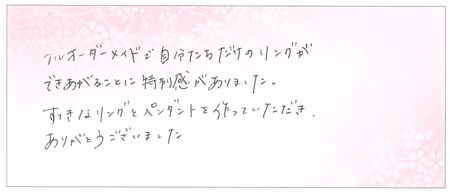 フルオーダーメイドで自分たちだけのリングが
できあがることに特別感がありました。
すてきなリングとペンダントを作っていただき、
ありがとうございました